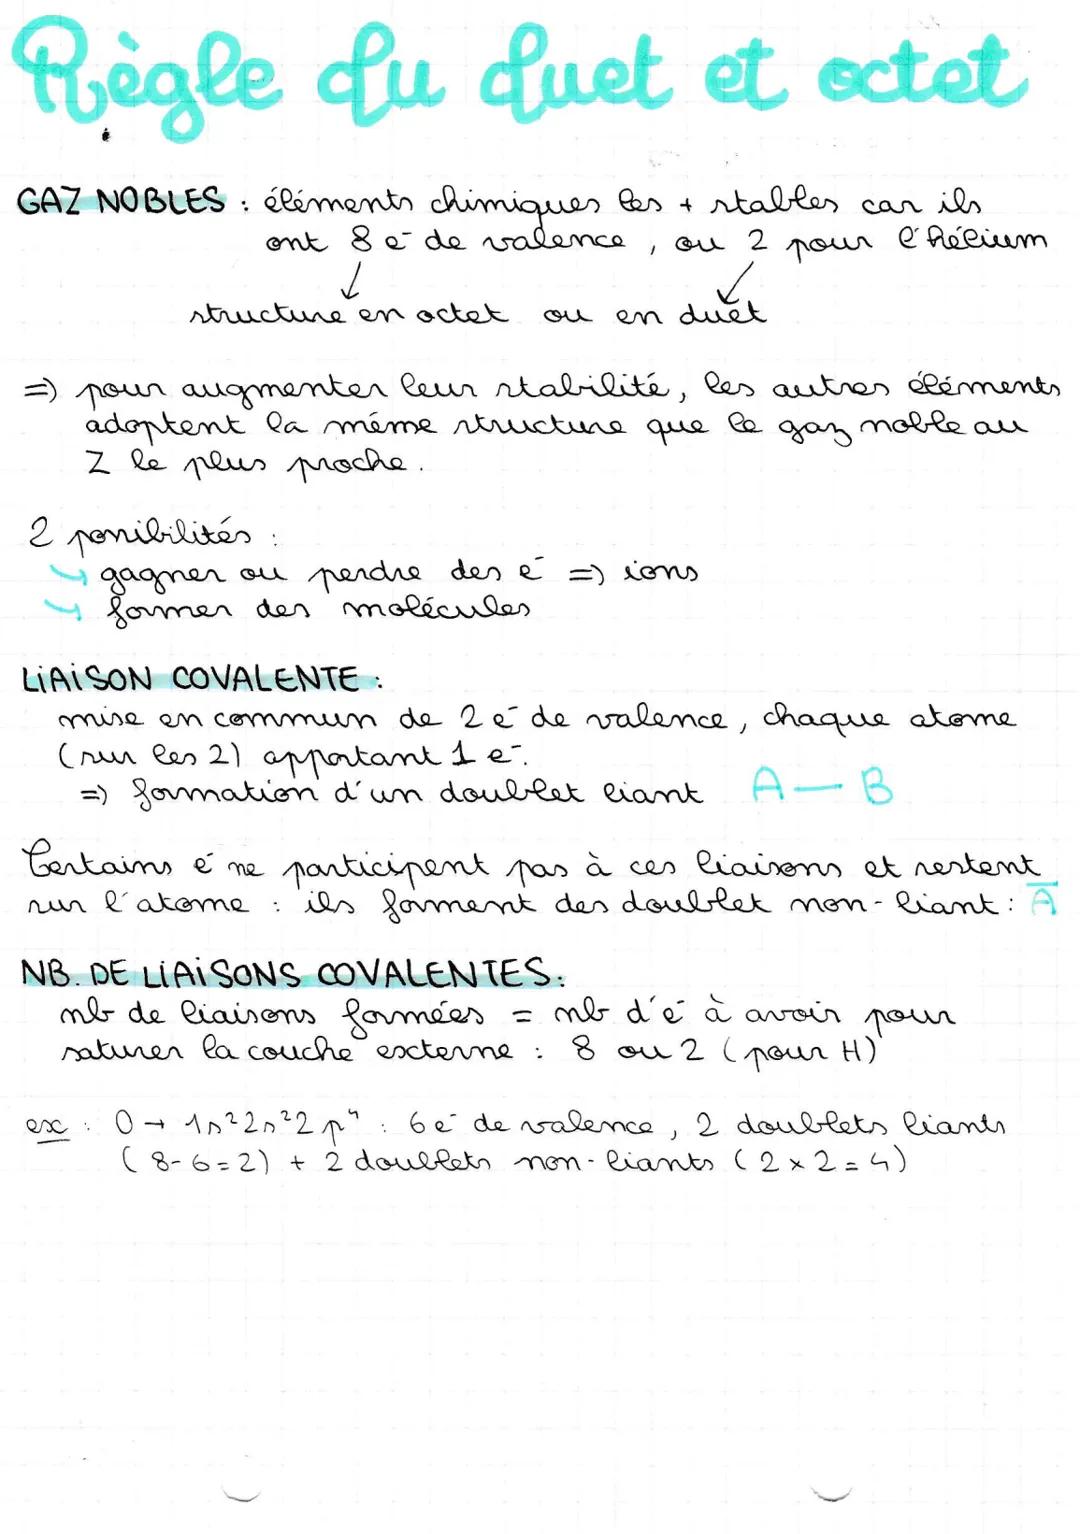 Règle du duet et octet
GAZ NOBLES : éléments chimiques les + stables car ils
ont 8 e⁻ de valence, ou 2 pour l'hélium
structure en octet ou en duet
=> pour augmenter leur stabilité, les autres éléments
adoptent la même structure que le gaz noble au
Z le plus proche.
2 possibilités :
↳ gagner ou perdre des e⁻ => ions
↳ former des molécules
LIAISON COVALENTE :
mise en commun de 2 e⁻ de valence, chaque atome
(sur les 2) apportant 1 e⁻.
=> formation d'un doublet liant A — B
Certains e⁻ ne participent pas à ces liaisons et restent
sur l'atome : ils forment des doublet non-liant : A̅
NB. DE LIAISONS COVALENTES :
nb de liaisons formées = nb d'e⁻ à avoir pour
saturer la couche externe : 8 ou 2 (pour H)
ex : O → 1s²2s²2p⁴ : 6 e⁻ de valence, 2 doublets liants
(8-6=2) + 2 doublets non-liants (2×2=4)